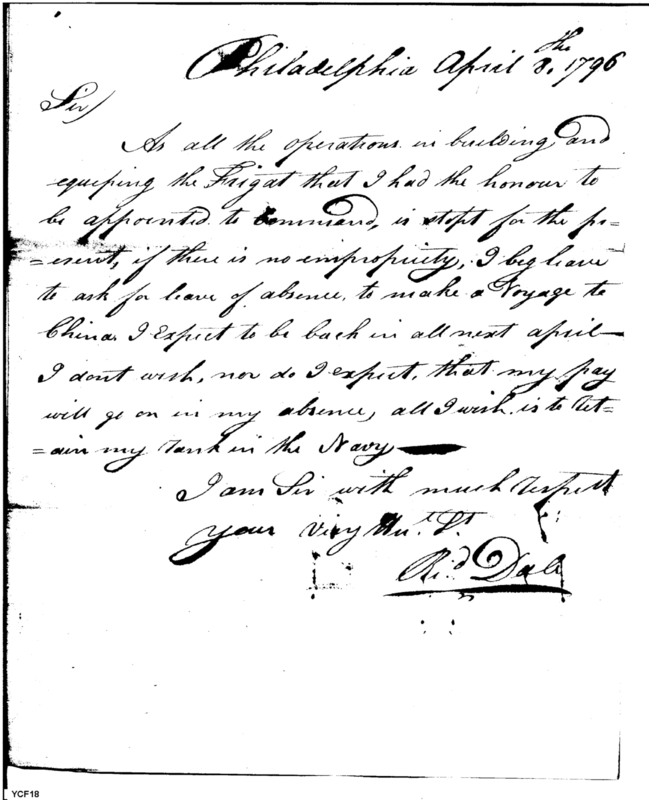 Philadelphia April 8.th 1796
Sir)
As all the operations in building and
equeping the Frigat that I had the honour to
be appointed to Command, is stopt for the pr=
=esent, if there is no impropriety, I beg leave
to ask for leave of absence, to make a Voyage to
China. I Expect to be back in all next april—
I dont wish, nor do I expect, that my pay
will go on in my absence, all I wish is to ret=
=ain my rank in the Navy —
I am Sir with much respect
your very Hu.t St.
Ri.d Dale
YCF18